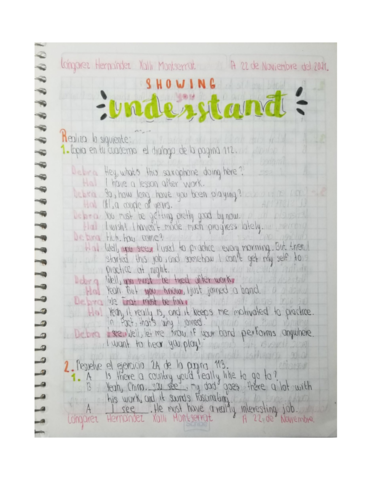 Hernandez Montserrat A 22 de Noviembre del 2021.
SHOWING
you
understand
Realiza lo siguiente:
1. Copia en tu cuaderno el dialogo de la pagina 112.
Debra Hey, what's this saxophone doing here?
Hal I have a lesson after work.
Debra So, how long have you been playing?
Hal Oh, a couple of years.
Debra You must be getting pretty good by now.
Hal I wish! I haven't made much progress lately.
Debra How come?
Hal Well, you know I used to practice every morning. But, then I
started this job, and somehow I can't get my self to
practice at night.
Debra Well, you must be tired after work
Hal Yeah. But you know, I just joined a band.
Debra must be fun
Hal Yeah, it really is, and it keeps me motivated to practice.
fact, that's why joined.
Debra I see. Well, let me know if your band performs anywhere
I want to hear you play!
2. Resuelve el ejercicio 2A de la pagina 113.
1. A Is there a country you'd really like to go to?
B Yeah, China. you see my dad goes there a lot with
his work, and it sounds fascinating.
A I see. He must have a really interesting job.
Hernandez Montserrat A 22 de Noviembre